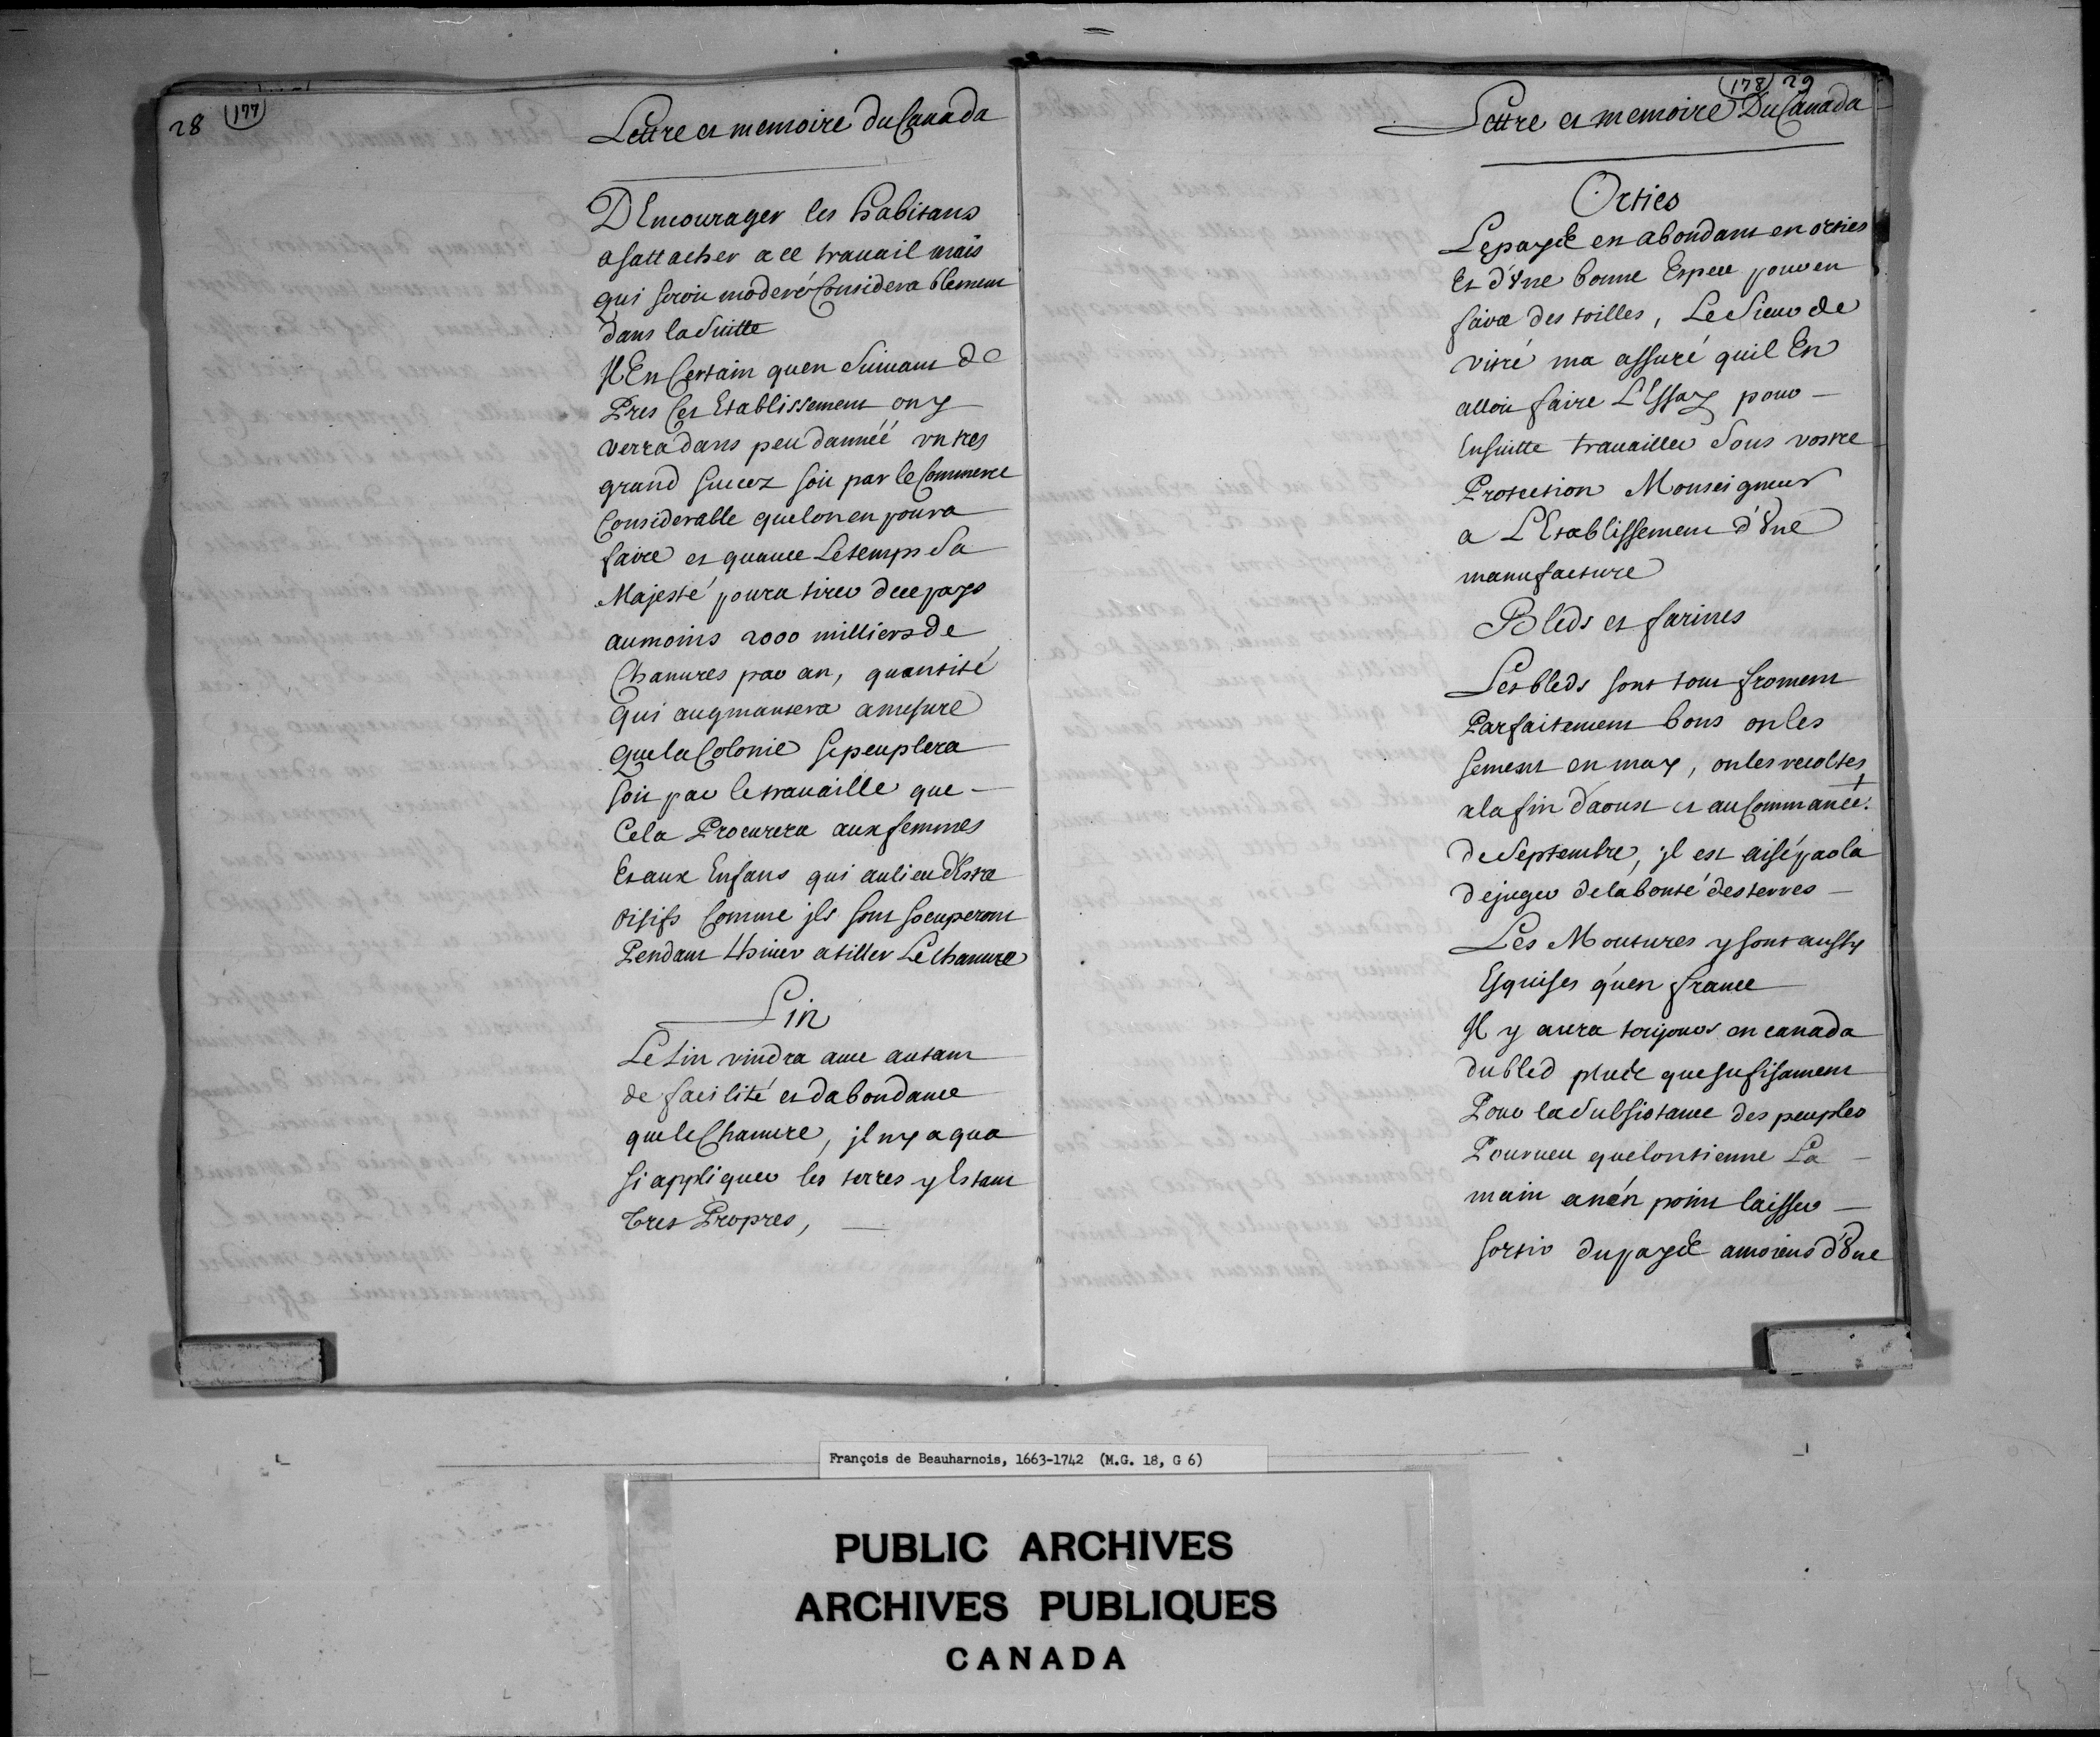 28 (177)
Lettre et memoire du Canada
D'Encourager les habitans
a sattacher a ce trauail mais
qui seroit moderé Considerablement
dans la Suitte
Il Est Certain quen Suiuant de
Pres Cet Establissement on y
verra dans peu danneé un tres
grand succez soit par le Commerce
Considerable que lon en poura
faire et quauec Le temps Sa
Majesté poura tirer de ce pays
au moins 2000 milliers de
Chanures par an, quantité
qui augmantera a mesure
que la Colonie se peuplera
soit par le trauaille que
Cela Procurera aux femmes
Et aux Enfans qui au lieu d'Estre
oisifs Comme jls sont soccuperont
Pendant Lhiuer a tiller Le chanure
Lin
Le Lin viendra auec autant
de facilité et dabondance
que le Chanure, jl ny a qua
si appliquer les terres y Estant
tres Propres,
(178) 29
Lettre et memoire Du Canada
Orties
Le pays est abondant en orties
Et d'Une bonne Espece pour en
faire des toilles, Le Sieur de
vitré ma assuré quil En
alloit faire L'Essay pour
Ensuitte trauailler Sous vostre
Protection Monseigneur
a L'Establissement d'Une
manufacture
Bleds et farines
Les bleds sont tout froment
Parfaitement bons on les
sement en may, on les recoltes
a la fin daoust et au Commancet.
de Septembre, jl est aisé par la
de juger de la bonté des terres
Les Moutures y sont aussy
Exquises qu'en france
Il y aura toujours en canada
du bled plus que sufisament
Pour la Subsistance des peuples
Pourueu que lon tienne La
main a n'en point laisser
sortir du pays a moins d'Une
François de Beauharnois, 1663-1742 (M.G. 18, G 6)
PUBLIC ARCHIVES
ARCHIVES PUBLIQUES
CANADA